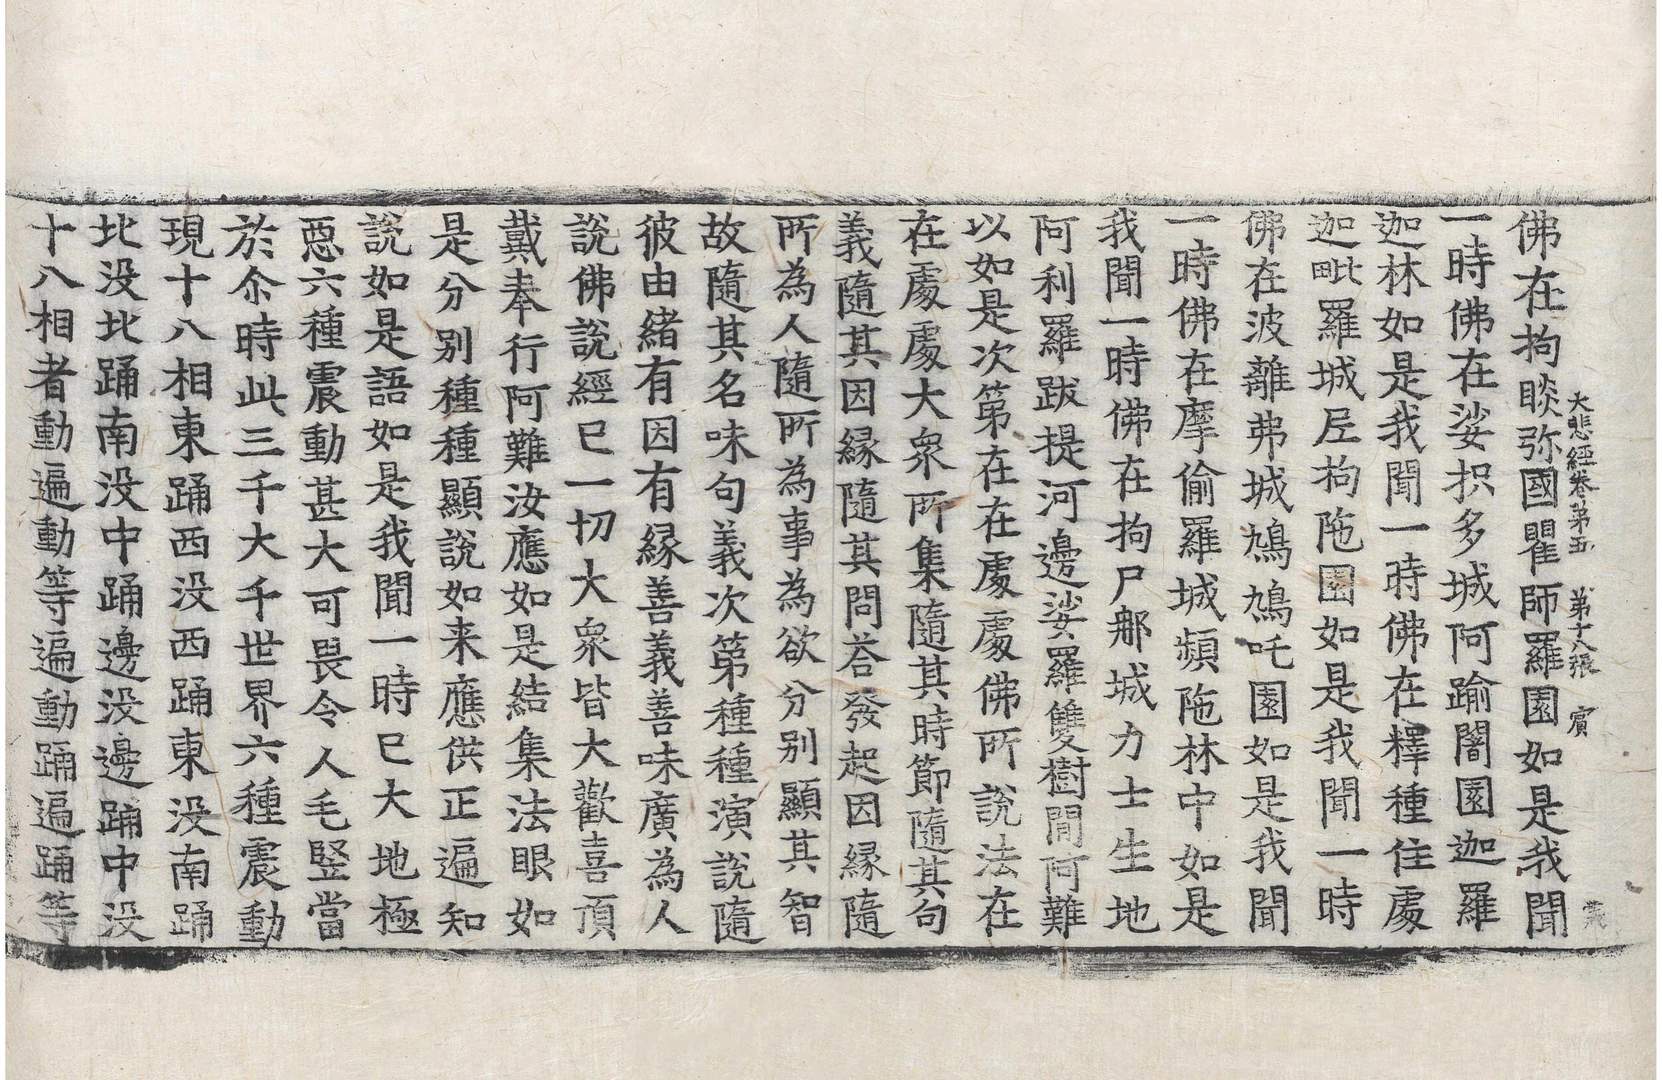 大悲經卷第五　第十八張　賔
佛在拘睒弥國瞿師羅園如是我聞
一時佛在娑枳多城阿踰闍園迦羅
迦林如是我聞一時佛在釋種住處
迦毗羅城𡰱拘陁園如是我聞一時
佛在波離弗城鳩鳩吒園如是我聞
一時佛在摩偷羅城頻陁林中如是
我聞一時佛在拘尸那城力士生地
阿利羅跋提河邊娑羅雙樹閒阿難
以如是次第在在處處佛所說法在
在處處大衆所集隨其時節隨其句
義隨其因縁隨其問荅發起因縁隨
所為人隨所為事為欲分別顯其智
故隨其名味句義次第種種演說隨
彼由緒有因有縁善義善味廣為人
說佛說經已一切大衆皆大歡喜頂
戴奉行阿難汝應如是結集法眼如
是分別種種顯說如来應供正遍知
說如是語如是我聞一時已大地極
惡六種震動甚大可畏令人毛竪當
於尒時此三千大千世界六種震動
現十八相東踊西没西踊東没南踊
北没北踊南没中踊邊没邊踊中没
十八相者動遍動等遍動踊遍踊等